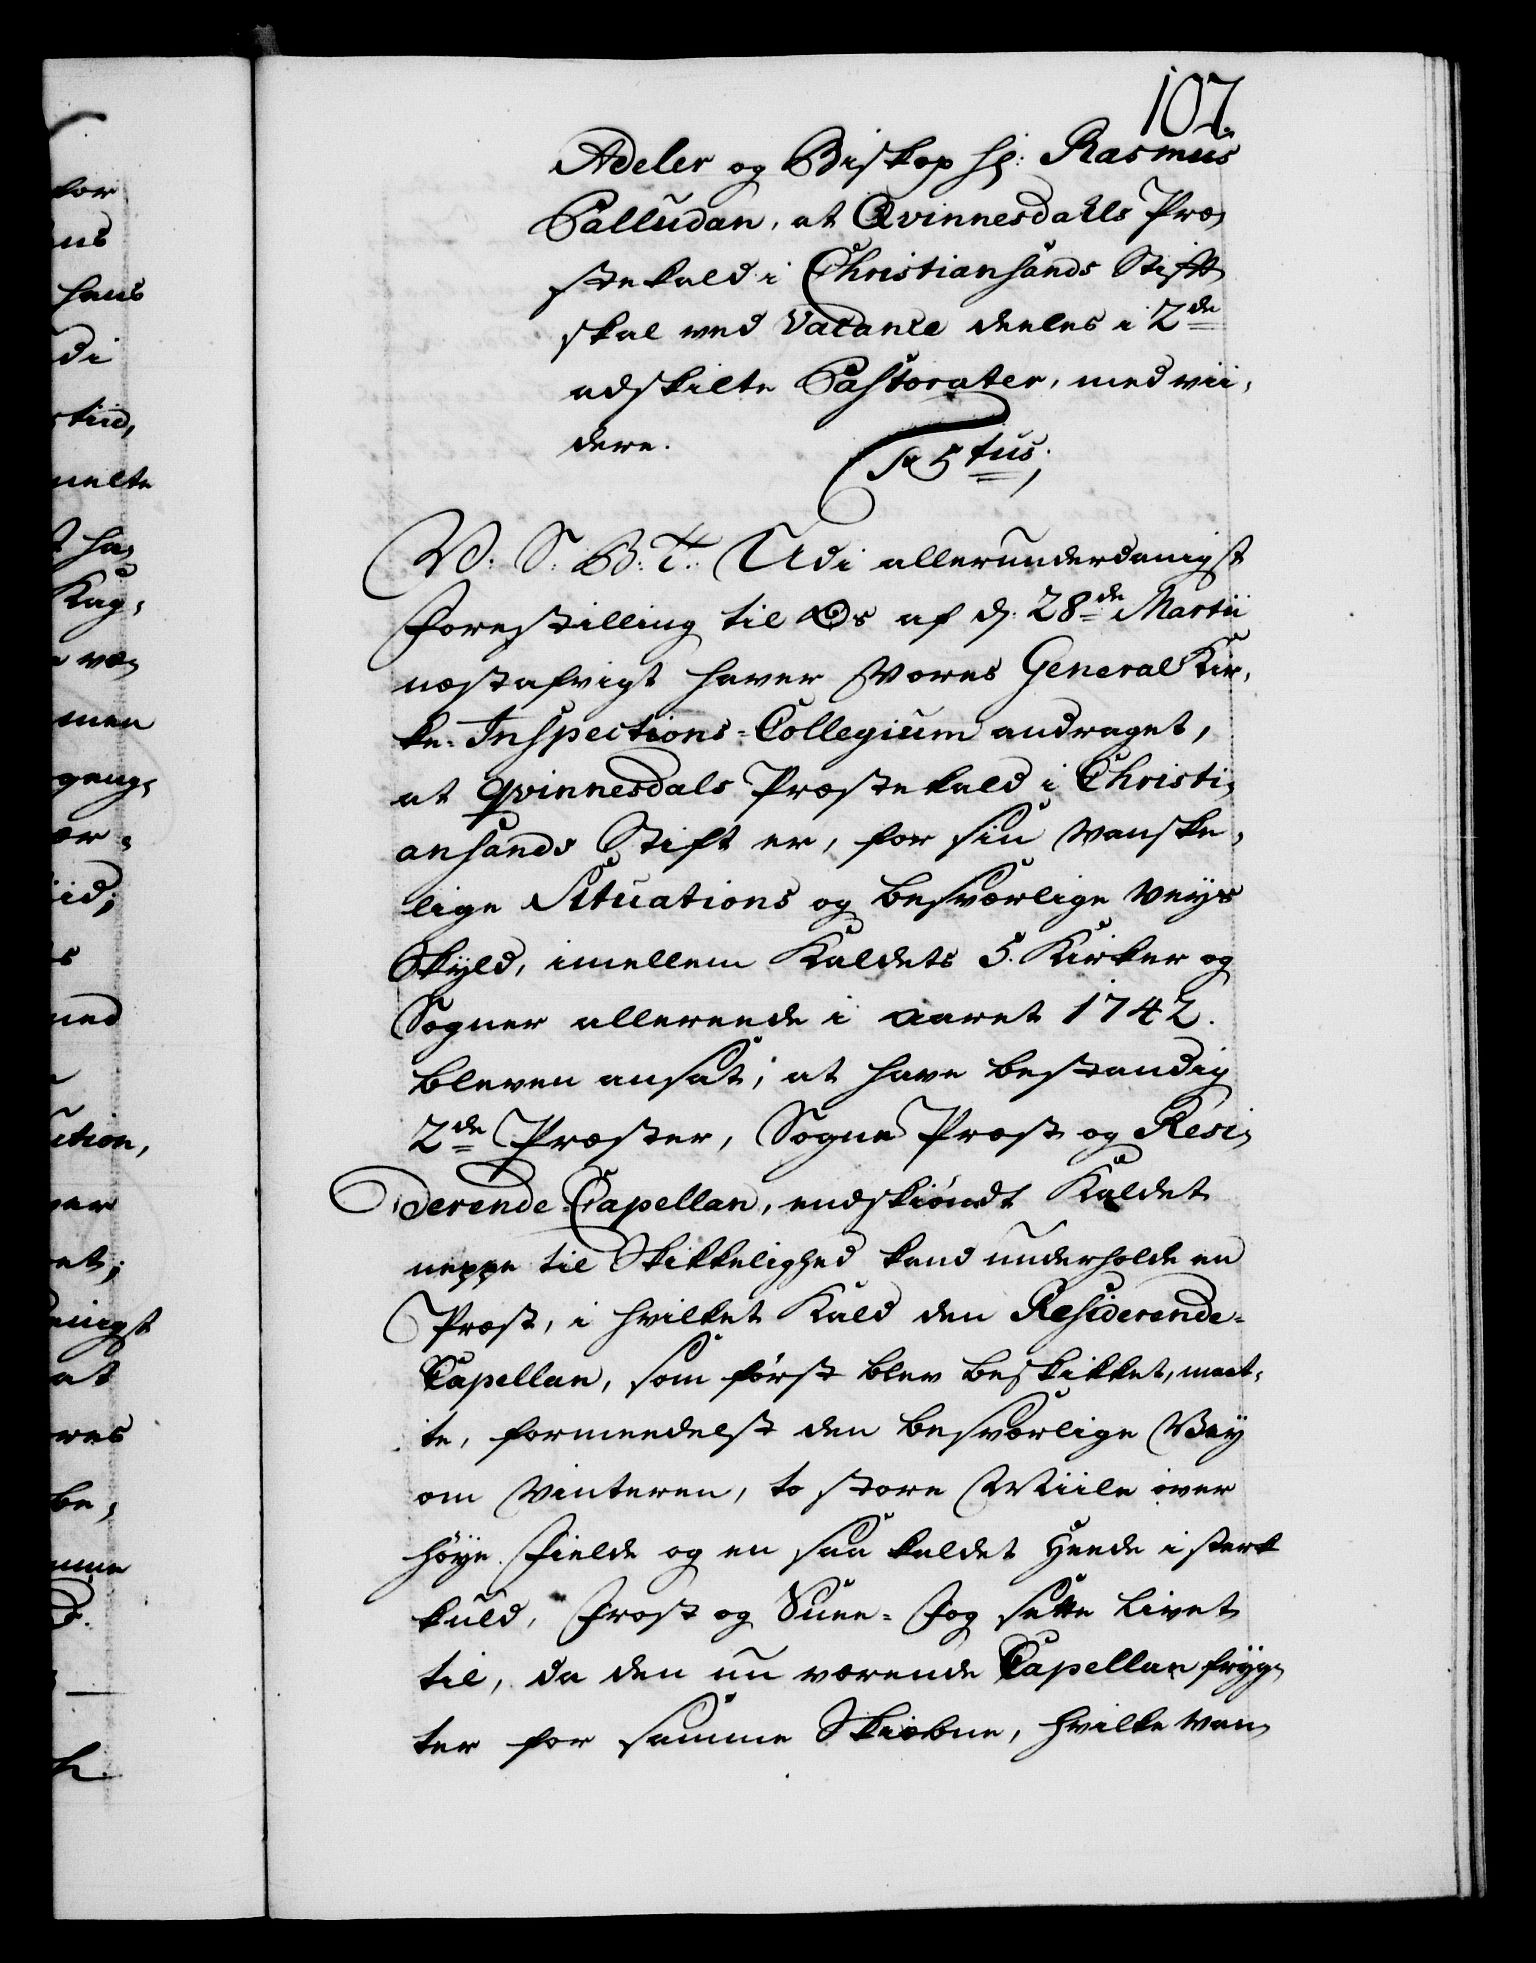 107.
Adeler og Biskop Hr: Rasmus
Palludan, at Qvinnesdahls Præ,
stekald i Christiansands Stift
skal ved Vacance deeles i 2de
adskilte Pastorater, med vii,
dere.
V: S: B: T: Udi allerunderdanigst
Forestilling til Os af d. 28de Martii
næstafvigt haver Vores General Kir,
ke-Inspections-Collegium andraget,
at Qvinnesdals Præstekald i Christi,
ansands Stift er, for sin vanske,
lige Situations og besværlige Veys
Skyld, imellem Kaldets 5. Kirker og
Sogner allereede i Aaret 1742.
bleven ansat, at have bestandig
2de Præster, Sogne Præst og Resi,
derende-Capellan, endskiöndt Kaldet
neppe til Skikkelighed kand underholde en
Præst, i hvilket Kald den Residerende-
Capellan, som först blev beskikket, maat,
te, formeedelst den besværlige Vey
om Vinteren, to store Miile over
höye Fielde og en saa kaldet Heede i sterk
kuld, Frost og Snee-Fog sette Livet
til, da den nu værende Capellan fryg,
ter for samme Skiæbne, hvilke Van,
for
hans
di
tiid,
melte
ha,
Kag,
væ,
men
gang,
ær,
iid;
med
ution,
ver
et;
nigst
at
res
be,